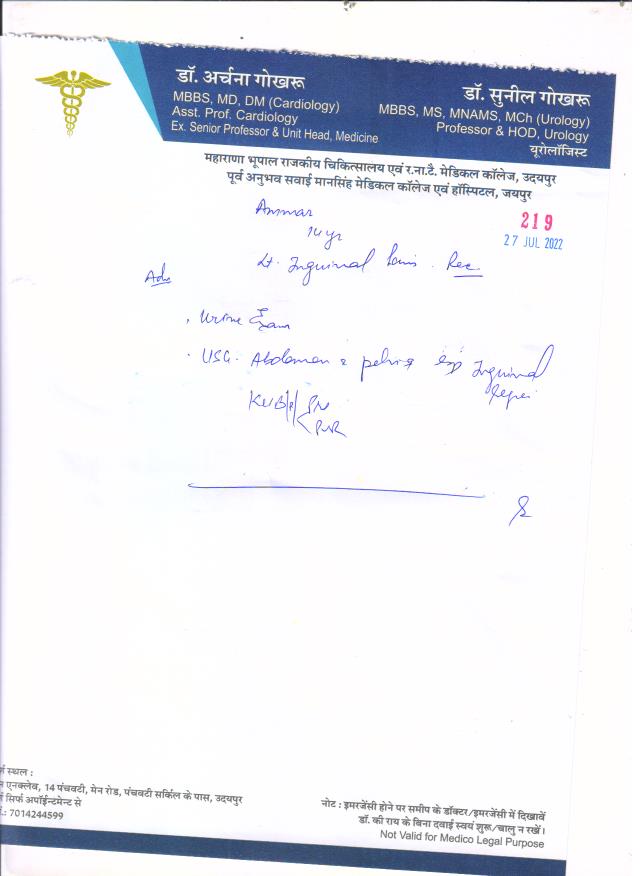 डॉ. अर्चना गोखरू
MBBS, MD, DM (Cardiology)
Asst. Prof. Cardiology
Ex. Senior Professor & Unit Head, Medicine
डॉ. सुनील गोखरू
MBBS, MS, MNAMS, MCh (Urology)
Professor & HOD, Urology
यूरोलॉजिस्ट
महाराणा भूपाल राजकीय चिकित्सालय एवं र.ना.टै. मेडिकल कॉलेज, उदयपुर
पूर्व अनुभव सवाई मानसिंह मेडिकल कॉलेज एवं हॉस्पिटल, जयपुर
219
27 JUL 2022
Ammar
14 yr
Lt. Inguinal Rec
Adv
. Urine Exam
. USG. Abdomen & pelvis esp Inguinal
KUB
PVR
स्थल :
एनक्लेव, 14 पंचवटी, मेन रोड, पंचवटी सर्किल के पास, उदयपुर
सिर्फ अपॉईन्टमेन्ट से
.: 7014244599
नोट : इमरजेंसी होने पर समीप के डॉक्टर/इमरजेंसी में दिखावें
डॉ. की राय के बिना दवाई स्वयं शुरू/चालु न रखें।
Not Valid for Medico Legal Purpose